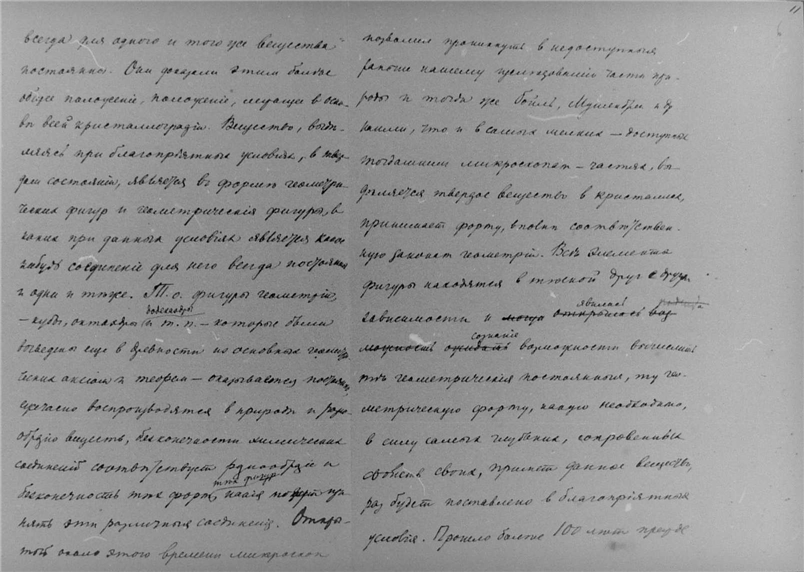 11
всегда для одного и того же вещества
постоянно. Они доказали этим более
общее положенiе, положенiе, лежащее в осно-
вѣ всей кристаллографiи. Вещество, выдѣ-
ляясь при благопрiятных условiях, в твер-
дом состоянiи, является в формѣ геометри-
ческих фигур и геометрическiя фигуры, в
каких при данных условiях является какое
нибудь соединенiе для него всегда постоянны
и одни и тѣже. Т. о. фигуры геометрiи,
многогранники
– кубы, октаэдры и т. п – которые были
выведены еще в древности из основных геометри-
ческих аксiом и теорем – оказывается постоянно,
ежечасно воспроизводятся в природѣ и разно-
образiю веществ, безконечности химических
соединенiй соотвѣтствует разнообразiе и
тѣх фигур
безконечность тѣх форм, какiя при-
нять эти различныя соединенiя. Откры-
тый около этого времени микроскоп
позволил проникнуть в недоступныя
ранѣе нашему изслѣдованiю части при-
роды и тогда же Бойль, и др
нашли, что и в самых мелких – доступных
тогдашним микроскопам – частях, вы-
дѣляется твердое вещество в кристаллах,
принимает форму, вполнѣ соотвѣтствен-
ную законам геометрiи. Всѣ элементы
фигуры находятся в тѣсной друг с другом
явилась
зависимости и
сознание
возможности вычислить
тѣ геометрическiя постоянныя, ту гео-
метрическую форму, какую необходимо,
в силу самых глубоких, сокровенных
свойств своих, примет данное вещество,
раз будет поставлено в благопрiятныя
условiя. Прошло болѣе 100 лѣт прежде